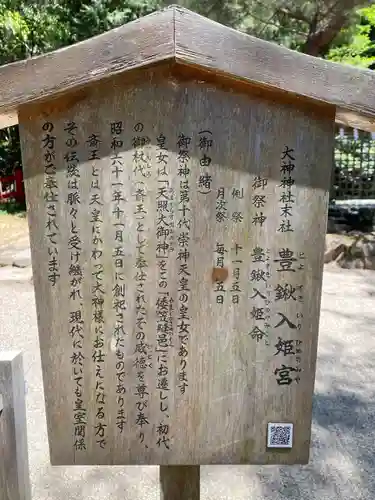 大神神社末社 豊鍬入姫宮
とよすきいりひめのみや
御祭神 豊鍬入姫命
とよすきいりひめのみこと
例祭 十一月五日
月次祭 毎月 五日
(御由緒)
御祭神は第十代崇神天皇の皇女であります
皇女は「天照大御神」をこの「倭笠縫邑」にお遷しし、初代
の「御杖代」、斎王として奉仕されたその威徳を尊び奉り、
昭和六十一年十一月五日に創祀されたものであります
斎王とは天皇にかわって大神様にお仕えになる方で
その伝統は脈々と受け継がれ、現代に於いても皇室関係
の方がご奉仕されています